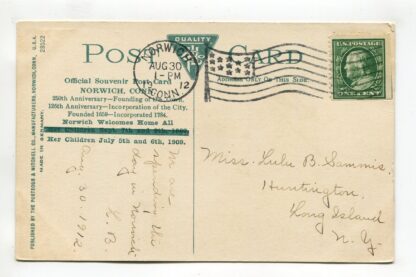 POST CARD
QUALITY
NORWICH
AUG 30
1-PM
12
CONN
ADDRESS ONLY ON THIS SIDE.
U.S. POSTAGE
ONE CENT
Official Souvenir Post Card
NORWICH, CONN.
250th Anniversary—Founding of
125th Anniversary—Incorporation of the City.
Founded 1659—Incorporated 1784.
Norwich Welcomes Home All
Her Children July 5th and 6th, 1909.
PUBLISHED BY THE PORTEOUS & MITCHELL CO., MANUFACTURERS, NORWICH, CONN., U.S.A.
MADE IN GERMANY.
29022
We are
spending the
day in Norwich
L. B.
Aug. 30. 1912.
Miss. Lulu B. Sammis.
Huntington.
Long Island
N. Y.